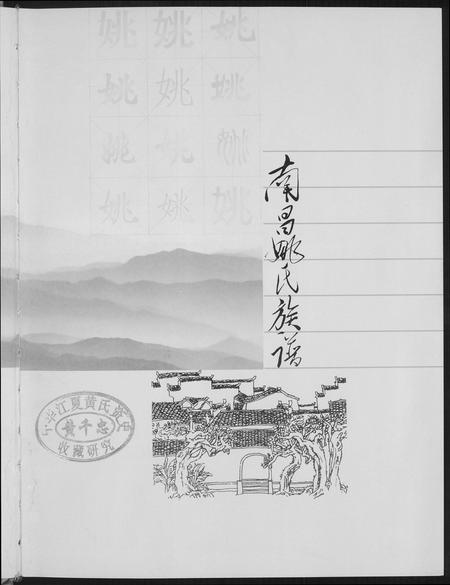 姚 姚 姚
姚 姚 姚
姚 姚 姚
姚 姚 姚
南昌姚氏族谱
江夏黄氏
黄千忠
收藏研究